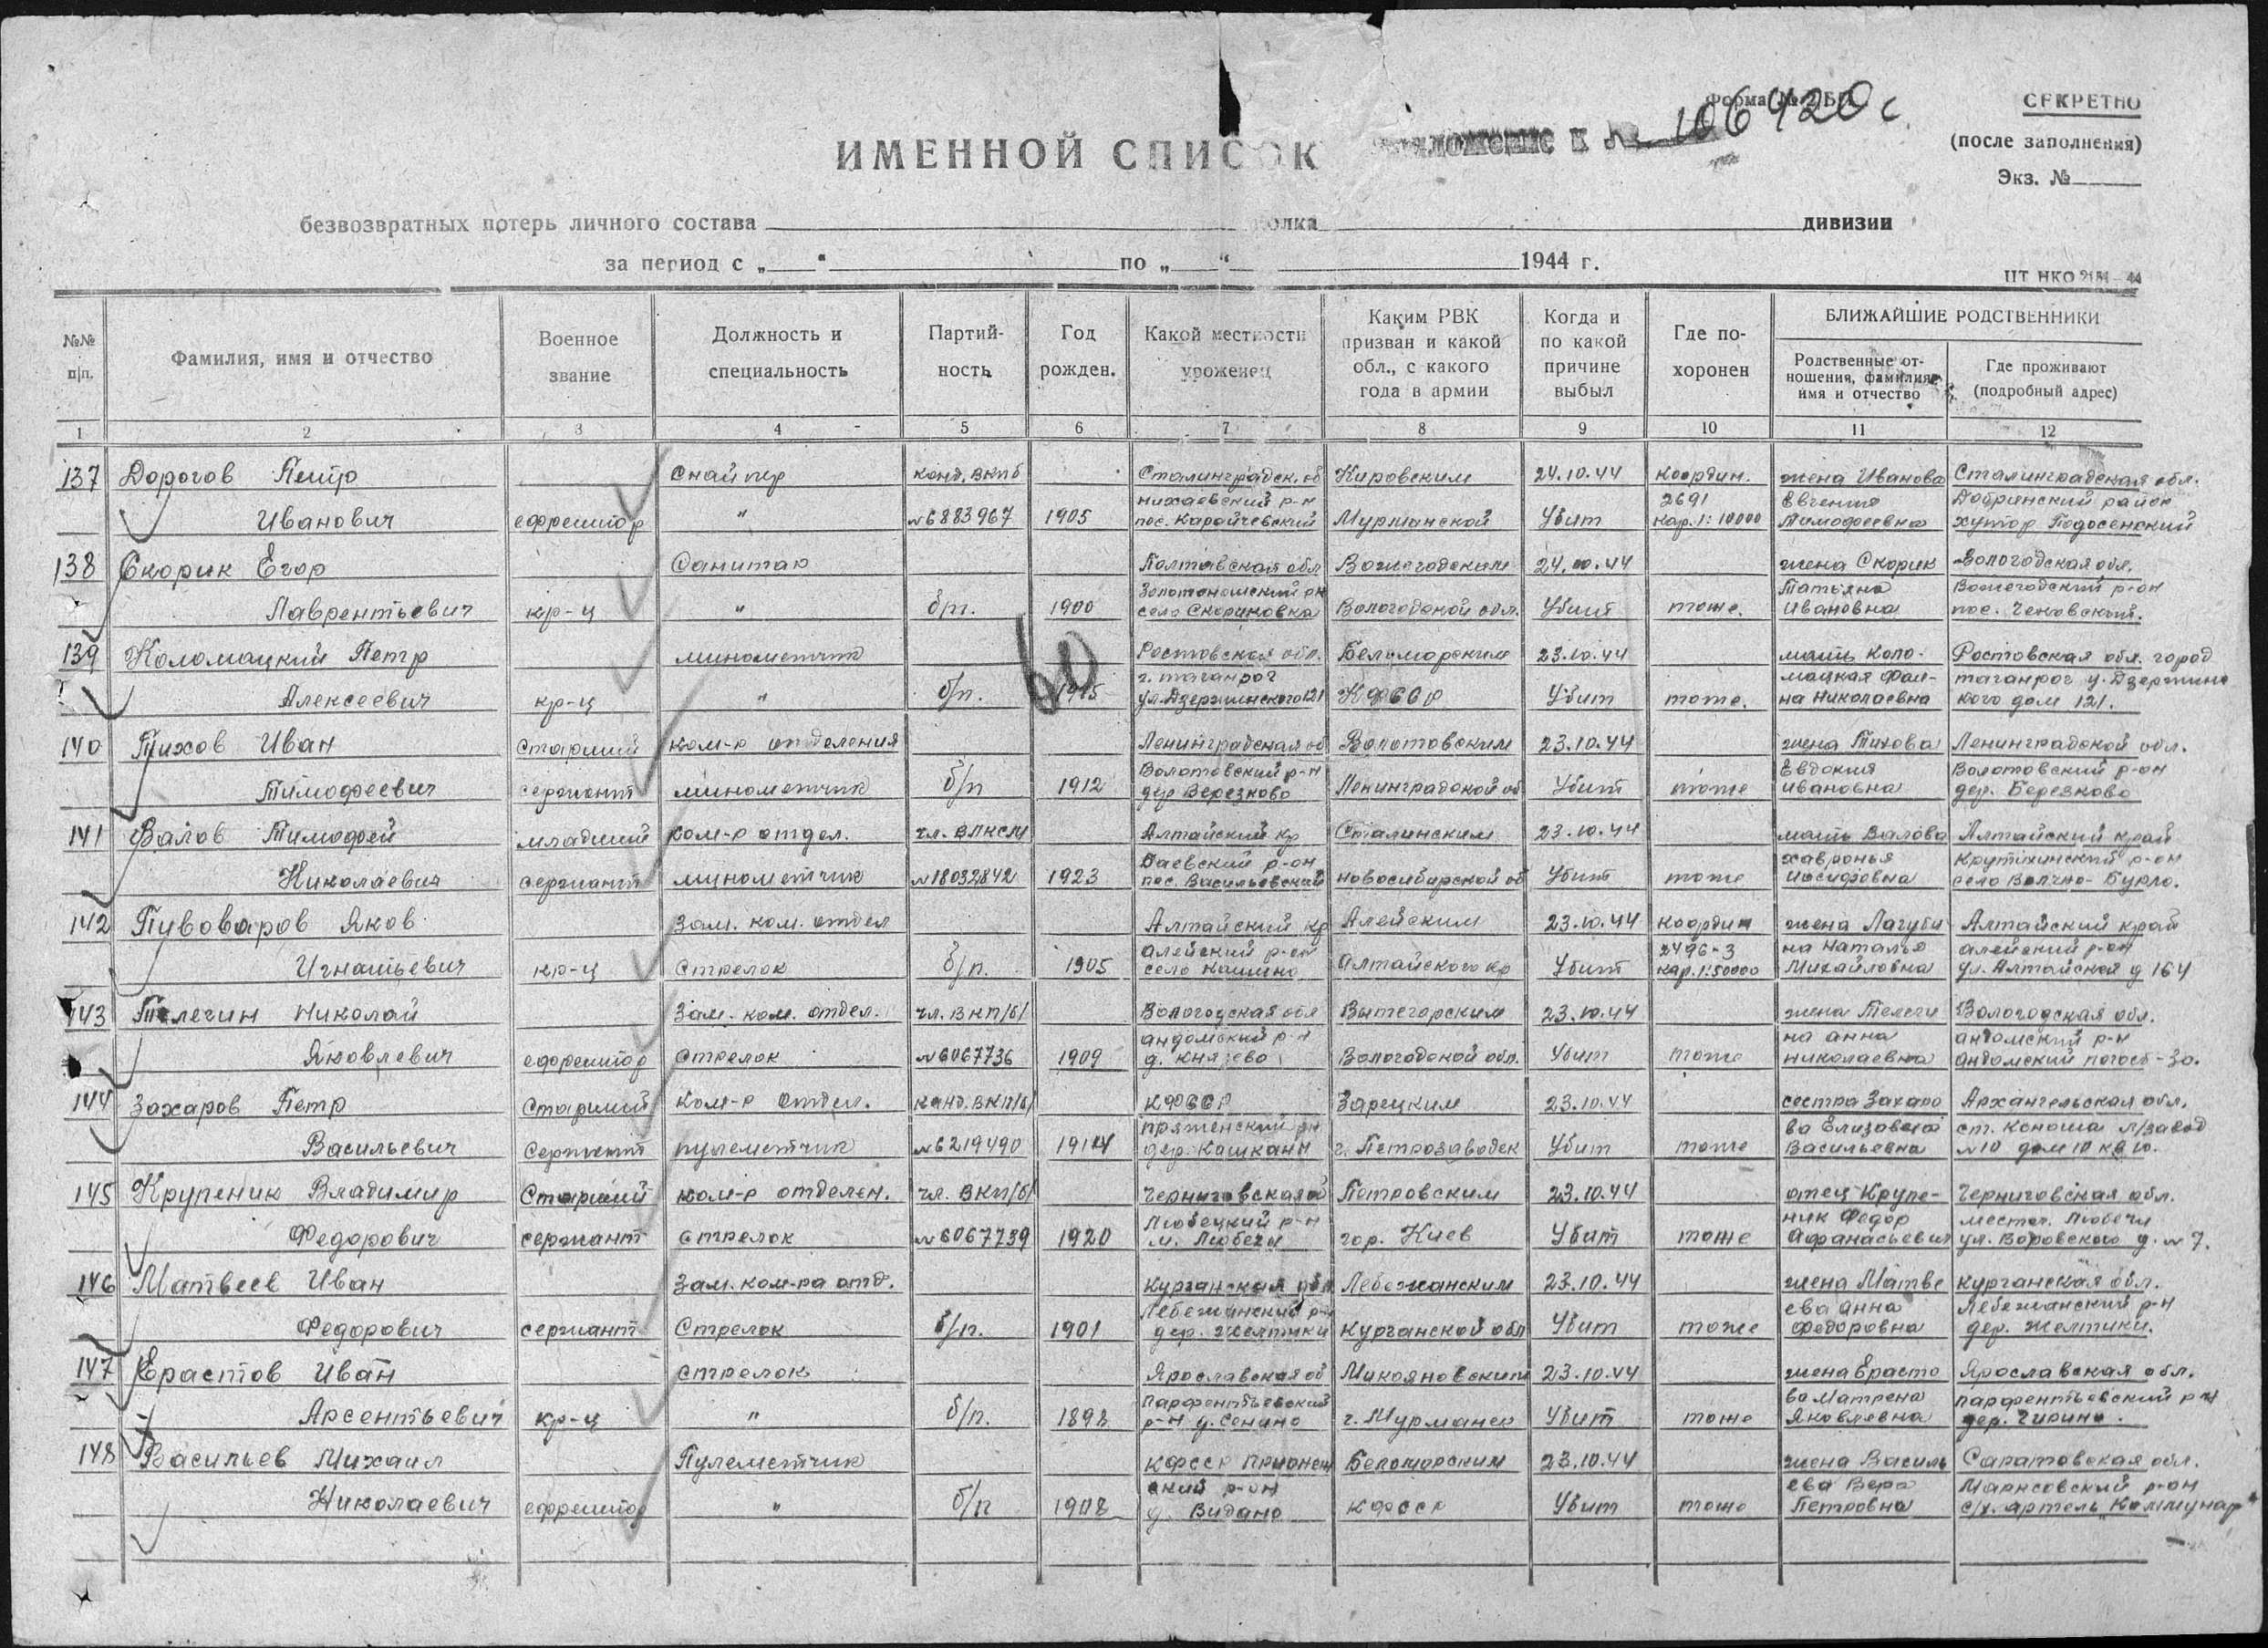 Форма № 2/БП
106420с
СЕКРЕТНО
ИМЕННОЙ СПИСОК
Приложение к №
(после заполнения)
Экз. №
безвозвратных потерь личного состава полка дивизии
за период с „ “ по „ “ 1944 г.
№№ п|п.
Фамилия, имя и отчество
Военное звание
Должность и специальность
Партий-ность
Год рожден.
Какой местности уроженец
Каким РВК призван и какой обл., с какого года в армии
Когда и по какой причине выбыл
Где по-хоронен
БЛИЖАЙШИЕ РОДСТВЕННИКИ
Родственные от-ношения, фамилия имя и отчество
Где проживают (подробный адрес)
1 2 3 4 5 6 7 8 9 10 11 12
60
137 Дорогов Петр Снайпер канд. ВКПб Сталинградск. об Кировским 24.10.44 коордын. жена Иванова Сталинградская обл.
нихаевский р-н 2691 Евгения Добринский район
Иванович ефрейтор " №6883967 1905 пос. Карайчевский Мурманской Убит кар. 1:10000 Тимофеевна хутор Подосенский
138 Скорик Егор Санитар Полтавская обл Вожегодским 24.10.44 жена Скорик Вологодская обл.
Золотоношский рн Татьяна Вожегодский р-он
Лаврентьевич кр-ц " б/п. 1900 село Скориковка Вологодской обл. Убит тоже. Ивановна пос.
139 Коломацкий Петр минометчик Ростовская обл. Беломорским 23.10.44 мать Коло- Ростовская обл. город
г. таганрог мацкая Фаи- таганрог у. Дзержинс
Алексеевич кр-ц " б/п. 1915 ул. Дзержинского 121 КФССР Убит тоже. на Николаевна кого дом 121.
140 Тихов Иван Старший ком-р отделения Ленинградская об Волотовским 23.10.44 жена Тихова Ленинградской обл.
Волотовский р-н Евдокия Волотовский р-он
Тимофеевич сержант минометчик б/п 1912 дер Березково Ленинградской об Убит тоже ивановна дер. Березково
141 Валов Тимофей младший ком-р отдел. чл. ВЛКСМ Алтайский кр Сталинским 23.10.44 мать Валова Алтайский край
Баевский р-он хавронья Крутихинский р-он
Николаевич сержант минометчик №18032842 1923 пос. Васильевский новосибирской об Убит тоже иосифовна село Волчно-Бурло.
142 Пувоваров Яков Зам. ком. отдел Алтайский кр Алейским 23.10.44 коордын жена Лагути Алтайский край
алейский р-он 2496-3 на Наталья алейский р-он
Игнатьевич кр-ц Стрелок б/п. 1905 село Кашино Алтайского кр Убит кар. 1:50000 Михайловна ул. Алтайская д 164
143 Телегин Николай Зам. ком. отдел. чл. ВКП/б/ Вологодская обл Вытегорским 23.10.44 жена Телеги Вологодская обл.
андомский р-н на анна андомский р-н
Яковлевич ефрейтор стрелок №6067736 1909 д. Князево Вологодской обл. Убит тоже николаевна андомский погост-30.
144 Захаров Петр Старший Ком-р Отдел. канд. ВКП/б/ КФССР Зарецким 23.10.44 сестра Захаро Архангельская обл.
пряженский рн ва Елизавета ст. Коноша л/завод
Васильевич Сержант пулеметчик №6219490 1914 дер. Кашкани г. Петрозаводск Убит тоже Васильевна №10 дом 10 кв 10.
145 Крупеник Владимир Старший ком-р отделен. чл. ВКП/б/ Черниговская об Петровским 23.10.44 отец Крупе- Черниговская обл.
Любецкий р-н ник Федор местеч. Любечи
Федорович сержант стрелок №6067739 1920 м. Любечи гор. Киев Убит тоже Афанасьевич ул. Воровского д. №7.
146 Матвеев Иван Зам. ком-ра отд. Курганская обл Лебежанским 23.10.44 жена Матве Курганская обл.
Лебежанский р-н ева анна Лебежанский р-н
Федорович сержант Стрелок б/п. 1901 дер. Желтики Курганской обл Убит тоже Федоровна дер. Желтики.
147 Ерастов Иван стрелок Ярославская об Микояновским 23.10.44 жена Ерасто Ярославская обл.
Парфентьевский ва Матрена парфентьевский р-н
Арсентьевич кр-ц " б/п. 1898 р-н д. Сенино г. Мурманск Убит тоже Яковлевна дер. Чирино.
148 Васильев Михаил Пулеметчик КФССР Прионеж Беломорским 23.10.44 жена Василь Саратовская обл.
ский р-он ева Вера Марксовский р-он
Николаевич ефрейтор " б/п 1908 д. Видано КФССР Убит тоже Петровна с/х. артель „Коммунар"